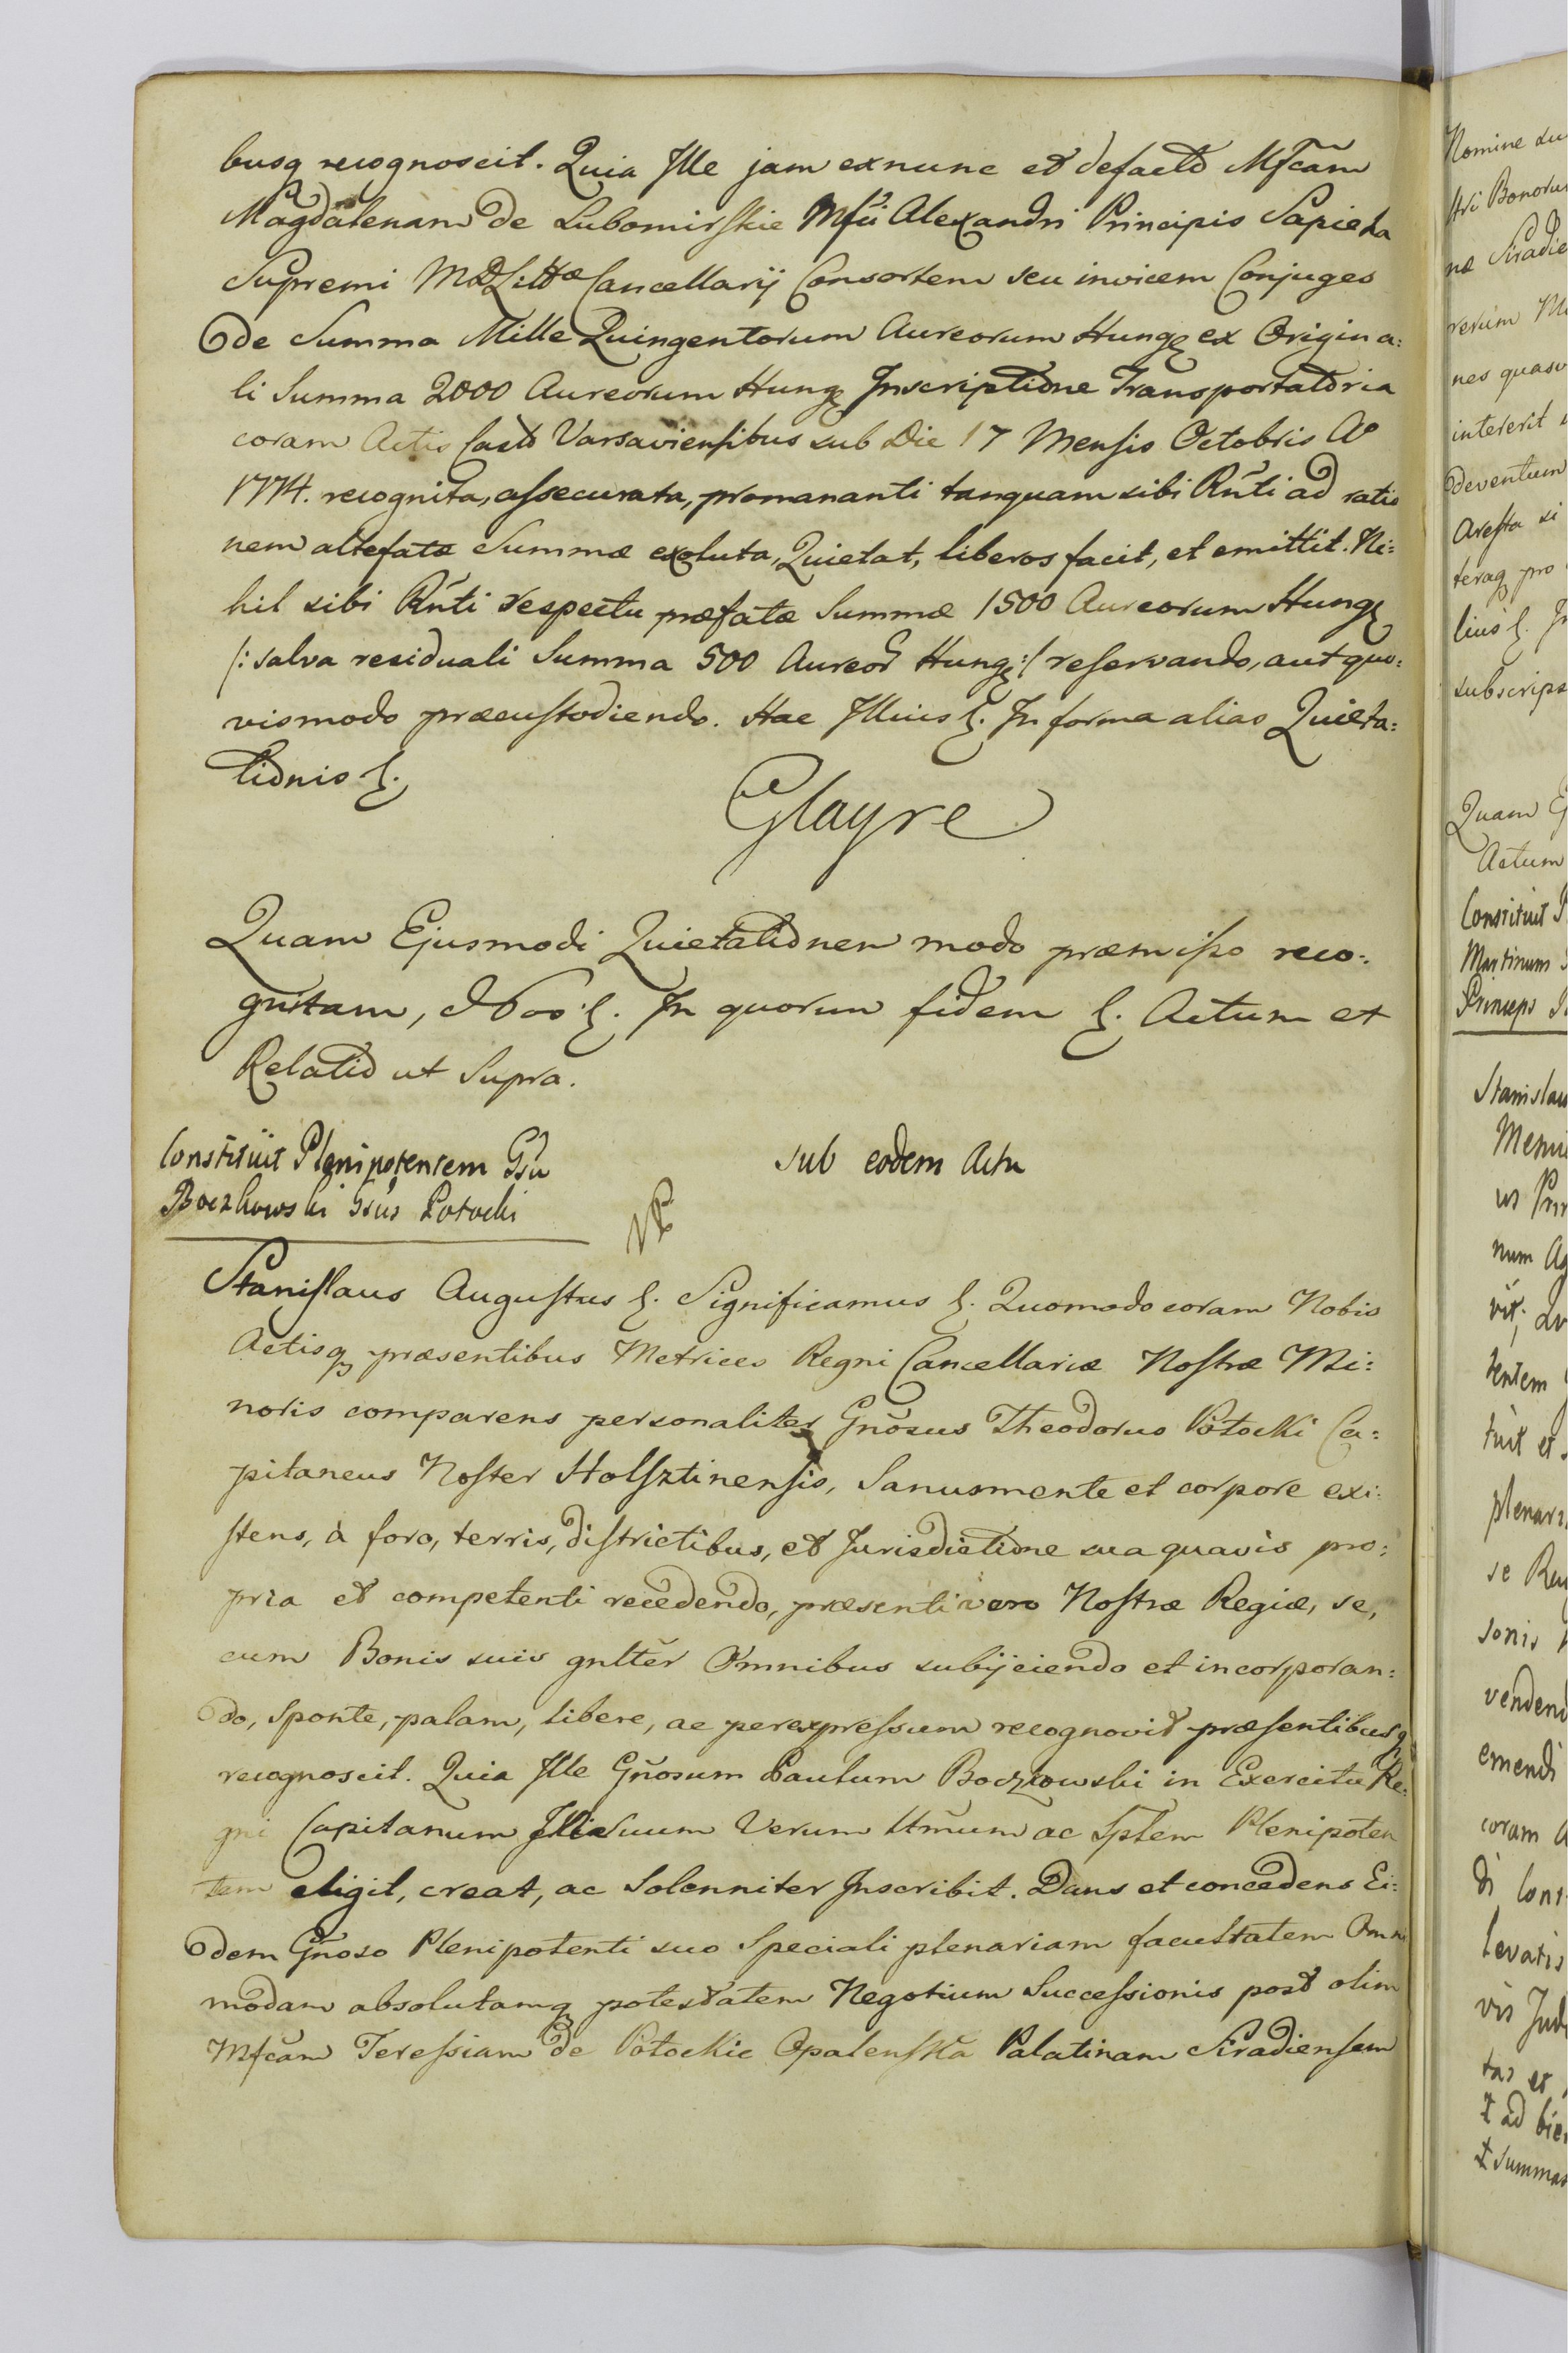 busq recognoscit. Quia Ille jam exnunc et defacto Mfcam
Magdalenam de Lubomirskie Mfci Alexandri Principis Sapieha
Supremi MDLittæ Cancellarij Consortem seu invicem Conjuges
de Summa Mille Quingentorum Aureorum Hung ex Origina:
li Summa 2000 Aureorum Hung Inscriptione Transportatoria
coram Actis Castr Varsaviensibus sub Die 17 Mensis Octobris Ao
1774. recognita, assecurata, promananti tanquam sibi Rnti ad ratio
nem altefatæ Summæ exoluta, Quietat, liberos facit, et emittit. Ni:
hil sibi Rnti respectu præfatæ Summæ 1500 Aureorum Hung
/: salva residuali Summa 500 Aureor Hung :/ reservando, aut quo:
vismodo præcustodiendo. Hac Illius &. In forma alias Quieta:
tionis &.
Glayre
Quam Ejusmodi Quietationem modo præmisso reco:
gnitam, Nos &. In quorum fidem &. Actum et
Relatio ut Supra.
Constituit Plenipotentem Gsu
Boczkowski Gsus Potocki
sub eodem Actu
Stanislaus Augustus &. Significamus &. Quomodo coram Nobis
Actisq præsentibus Metrices Regni Cancellariæ Nostræ Mi:
noris comparens personaliter Gnosus Theodorus Potocki Ca:
pitaneus Noster Holsztinensis, Sanus mente et corpore exi:
stens, à foro, terris, districtibus, et Jurisdictione sua quavis pro:
pria et competenti recedendo, præsenti vero Nostræ Regiæ, se,
cum Bonis suis gnlter Omnibus subijciendo et incorporan:
do, Sponte, palam, libere, ac per expressum recognovit præsentibusq
recognoscit. Quia Ille Gnosum Paulum Boczkowski in Exercitu Re:
gni Capitanum Suum Verum Ltmum ac Splem Plenipoten
tem eligit, creat, ac Solenniter Inscribit. Dans et concedens Ei:
dem Gnoso Plenipotenti suo Speciali plenariam facultatem Omni
modam absolutamq potestatem Negotium Successionis post olim
Mfcam Teressiam de Potockie Opalenska Palatinam Siradiensem
Nomine su
stri Bonoru
næ Siradie
rerum M
nes quasv
intererit
deventum
Aresta si
teraq pro
lius &. In
subscrips
Quam Ej
Actum
Constituit P
Martinum
Princeps
Stanislau
us Prin
num Ag
vit;
tentem
tuit et
plenari
se
sonis
vendend
emendi
coram A
di Cons
levatis
vis Jud
tas et
ad
Summas